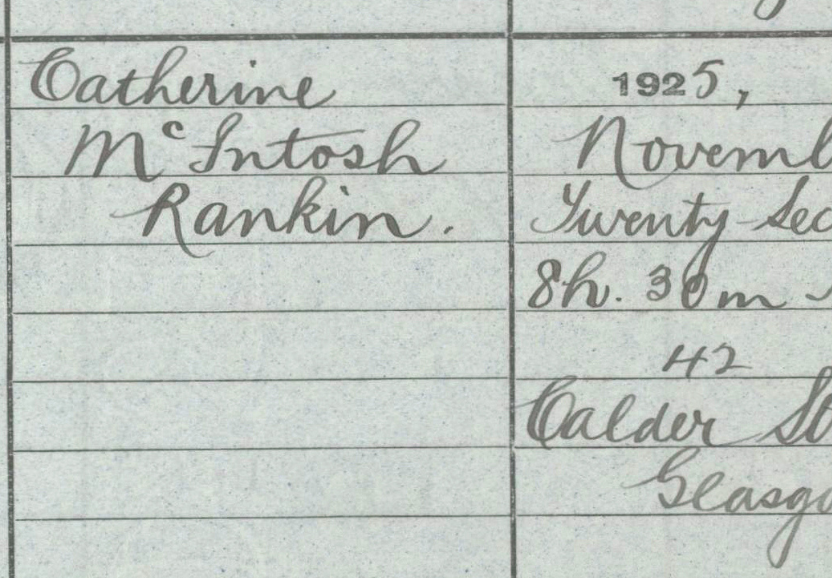 Catherine
McIntosh
Rankin.
1925,
Novemb
Twenty-Sec
8h. 30m
42
Calder St
Glasgo